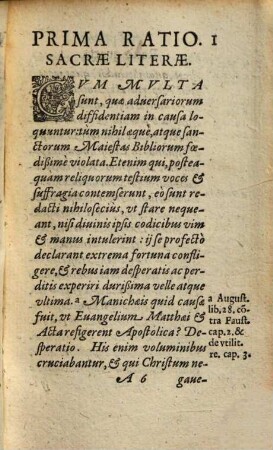 PRIMA RATIO. 1
SACRÆ LITERÆ.
CVM MVLTA
sunt, quæ adversariorum
diffidentiam in causa lo
quuntur: tum nihil æquè, atque san-
ctorum Maiestas Bibliorum fœ-
dissimè violata. Etenim qui, postea-
quam reliquorum testium voces &
suffragia contemserunt, eò sunt re-
dacti nihilosecius, vt stare neque-
ant, nisi divinis ipsis codicibus vim
& manus intulerint: ij se profectò
declarant extrema fortuna confli-
gere, & rebus iam desperatis ac per-
ditis experiri durissima velle atque
vltima. a Manichæis quid causæ
fuit, vt Euangelium Matthæi &
Acta refigerent Apostolica? De-
speratio. His enim voluminibus
cruciabantur, & qui Christum ne-
a August.
lib. 28. cō-
tra Faust.
cap. 2. &
de vtilit.
cre. cap. 3.
A 6 gaue-